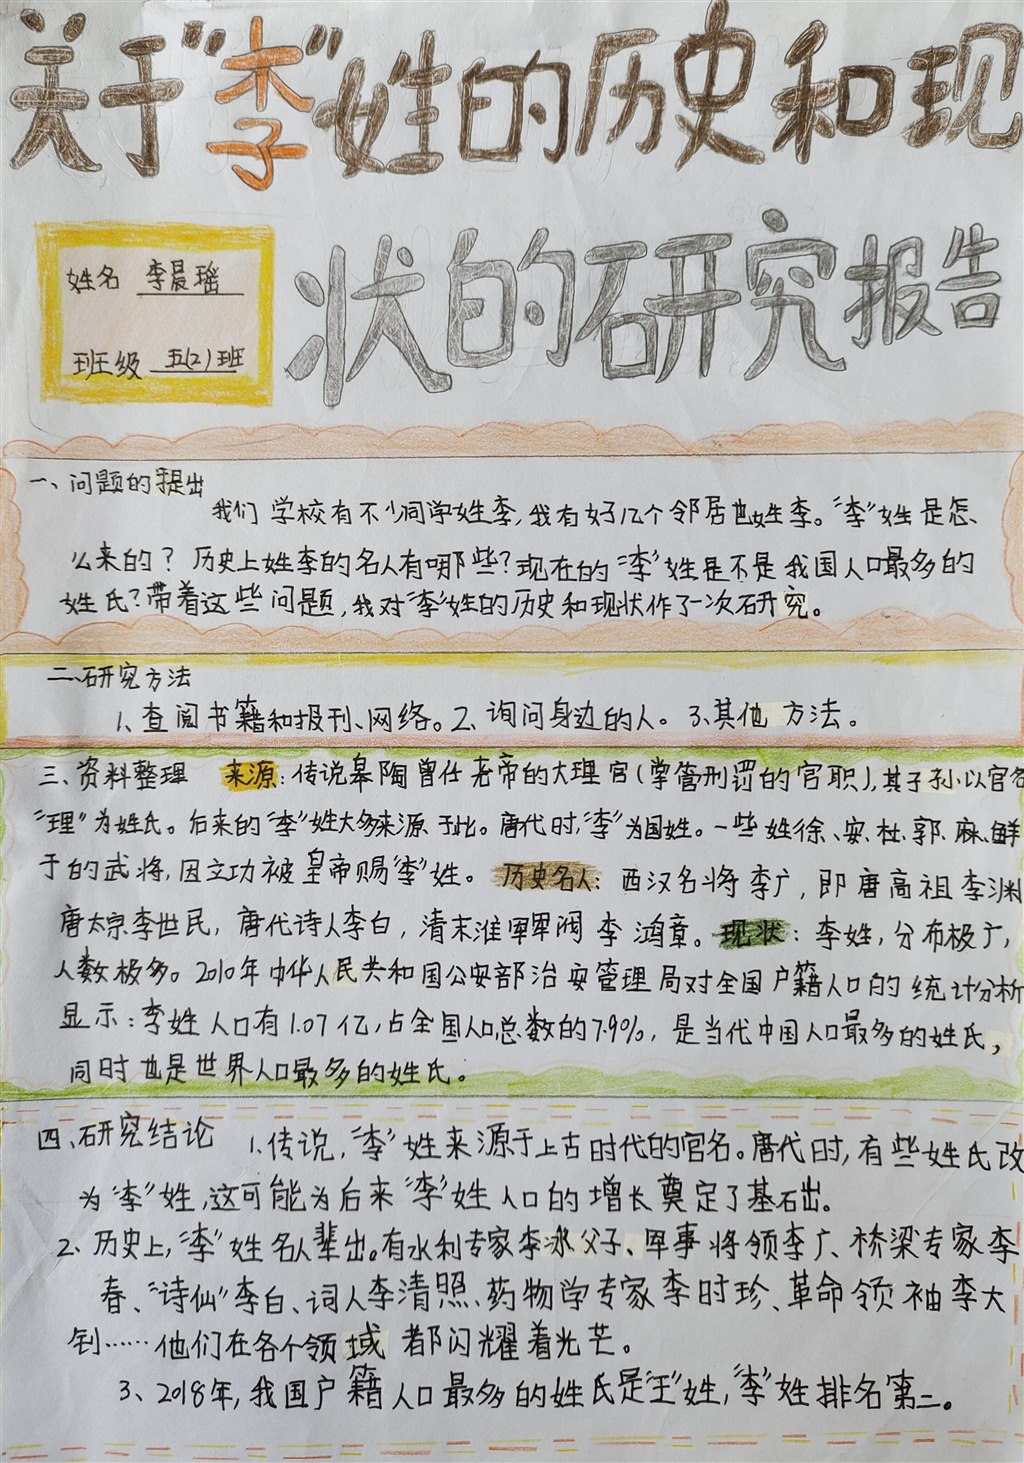 关于"李"姓的历史和现
状的研究报告
姓名 李晨瑶
班级 五(2)班
一、问题的提出
我们学校有不少同学姓李,我有好几个邻居也姓李。"李"姓是怎
么来的?历史上姓李的名人有哪些?现在的"李"姓是不是我国人口最多的
姓氏?带着这些问题,我对"李"姓的历史和现状作了一次研究。
二、研究方法
1、查阅书籍和报刊、网络。2、询问身边的人。3、其他方法。
三、资料整理 来源:传说皋陶曾任尧帝的大理官(掌管刑罚的官职),其子孙以官名
"理"为姓氏。后来的"李"姓大多来源于此。唐代时,"李"为国姓。一些姓徐、安、杜、郭、麻、鲜
于的武将,因立功被皇帝赐"李"姓。历史名人:西汉名将李广,即唐高祖李渊
唐太宗李世民,唐代诗人李白,清末淮军军阀李鸿章。现状:李姓,分布极广,
人数极多。2010年中华人民共和国公安部治安管理局对全国户籍人口的统计分析
显示:李姓人口有1.07亿,占全国人口总数的7.9%,是当代中国人口最多的姓氏,
同时也是世界人口最多的姓氏。
四、研究结论 1.传说,"李"姓来源于上古时代的官名。唐代时,有些姓氏改
为"李"姓,这可能为后来"李"姓人口的增长奠定了基石出。
2、历史上,"李"姓名人辈出。有水利专家李冰父子、军事将领李广、桥梁专家李
春、"诗仙"李白、词人李清照、药物学专家李时珍、革命领袖李大
钊……他们在各个领域都闪耀着光芒。
3、2018年,我国户籍人口最多的姓氏是"王"姓,"李"姓排名第二。